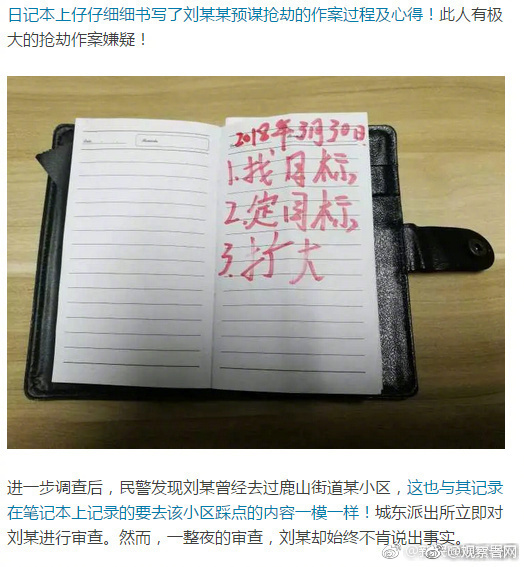 日记本上仔仔细细书写了刘某某预谋抢劫的作案过程及心得！此人有极
大的抢劫作案嫌疑！
2018年3月30日
1.找目标,
2.定目标,
3.扩大
进一步调查后，民警发现刘某曾经去过鹿山街道某小区，这也与其记录
在笔记本上记录的要去该小区踩点的内容一模一样！城东派出所立即对
刘某进行审查。然而，一整夜的审查，刘某却始终不肯说出事实。
@观察者网